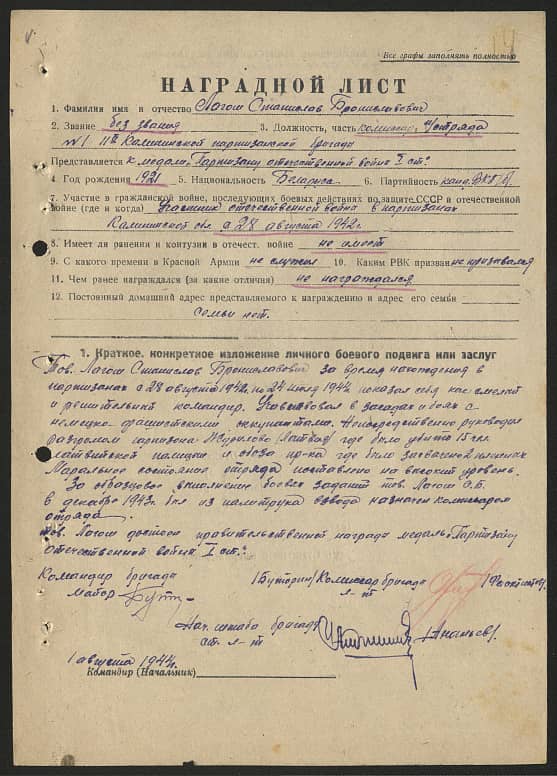 Все графы заполнять полностью
НАГРАДНОЙ ЛИСТ
1. Фамилия имя и отчество Логош Станислав Брониславович
2. Звание без звания 3. Должность, часть комиссар отряда
№1 11й Калининской партизанской бригады
Представляется к медали „Партизану отечественной войны I ст."
4. Год рождения 1921 5. Национальность Беларус 6. Партийность канд. ВКП/б/
7. Участие в гражданской войне, последующих боевых действиях по защите СССР и отечественной
войне (где и когда) Участник отечественной войны в партизанах
Калининской обл. с 28 августа 1942г.
8. Имеет ли ранения и контузии в отечест. войне не имеет
9. С какого времени в Красной Армии не служил 10. Каким РВК призван не призывался
11. Чем ранее награждался (за какие отличия) не награждался
12. Постоянный домашний адрес представляемого к награждению и адрес его семьи
семьи нет.
1. Краткое, конкретное изложение личного боевого подвига или заслуг
Тов. Логош Станислав Брониславович за время нахождения в
партизанах с 28 августа 1942г. по 24 июля 1944г. показал себя как смелый
и решительный командир. Участвовал в засадах и боях с
немецко-фашистскими оккупантами. Непосредственно руководил
разгромом гарнизона (Латвия) где было убито 15 чел.
латвийской полиции и обоза пр-ка где было захвачено
Маральное состояние отряда поставлено на высокий уровень.
За образцовое выполнение боевых заданий тов. Логош С.Б.
в декабре 1943г. был из политрука взвода назначен комиссаром
отряда.
тов. Логош достоен правительственной награды медаль „Партизану
отечественной войны I ст."
Командир бригады /Буторин/ Комиссар бригады
майор л-т
Нач. штаба бригады
ст. л-т /Ананьев/
1 августа 1944г.
Командир (Начальник)